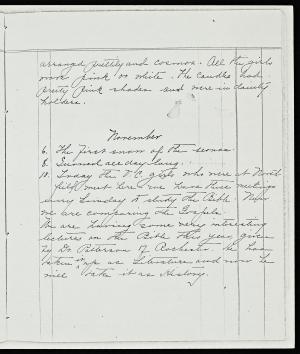 arranged prettily and cosmos. All the girls
wore pink or white. The candles had
pretty pink shades and were in dainty
holders.
November
6. The first snow of the season.
8. Sunned ace day long.
10. Today the Y.C. girls who were at North
field met here. We have these meetings
every Sunday to study the Bible. Now
we are comparing the Gospels.
We are having some very interesting
lectures on the Bible this year given
by Dr. Patterson of Rochester. He has
taken it up as Literature and now he
will take it as History.